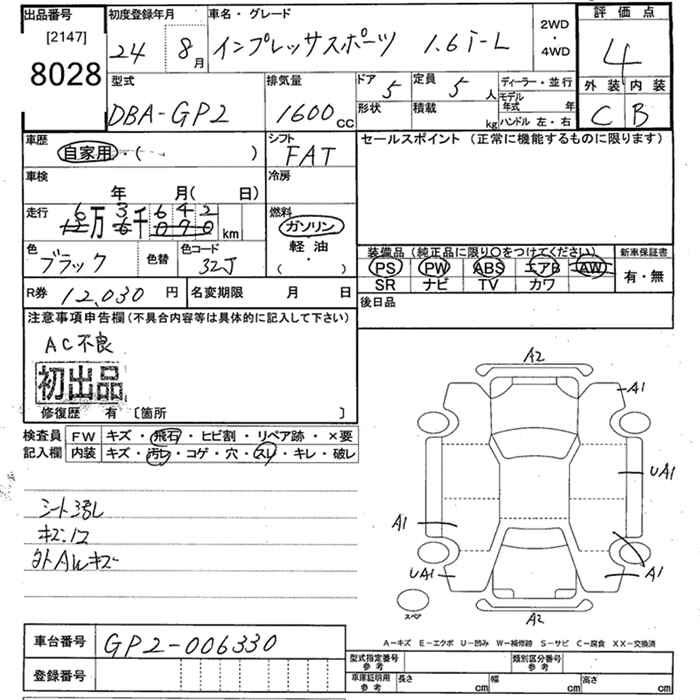 出品番号 [2147] 8028
初度登録年月 24 8月
車名・グレード インプレッサスポーツ 1.6 i-L
2WD・4WD
評価点 4
外装 内装
C B
型式 DBA-GP2
排気量 1600cc
ドア 5 定員 5人
形状 積載 kg
ディーラー・並行
モデル年式 年
ハンドル 左・右
車歴 自家用・( )
シフト FAT
セールスポイント (正常に機能するものに限ります)
車検 年 月( 日)
冷房
走行 6万3千642km
燃料 ガソリン 軽油・( )
色 ブラック 色替 色コード 32J
装備品(純正品に限り〇をつけてください)
PS PW ABS エアB AW
SR ナビ TV カワ
新車保証書 有・無
R券 12,030円 名変期限 月 日
後日品
注意事項申告欄(不具合内容等は具体的に記入して下さい)
AC不良
初出品
修復歴 有 〔箇所 〕
検査員 FW キズ・飛石・ヒビ割・リペア跡・×要
記入欄 内装 キズ・汚レ・コゲ・穴・スレ・キレ・破レ
シート汚レ
キズ.
外AWキズ
A2
A1
UA1
A1
UA1
A1
A2
スペア
A-キズ E-エクボ U-凹み W-補修跡 S-サビ C-腐食 XX-交換済
車台番号 GP2-006330
登録番号
型式指定番号 参考 類別区分番号 参考
車庫証明用 参考 長さ cm 幅 cm 高さ cm